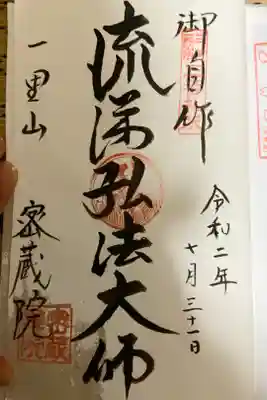 御自作
令和二年
十月三十一日
流涕弘法大師
一里山
密蔵院